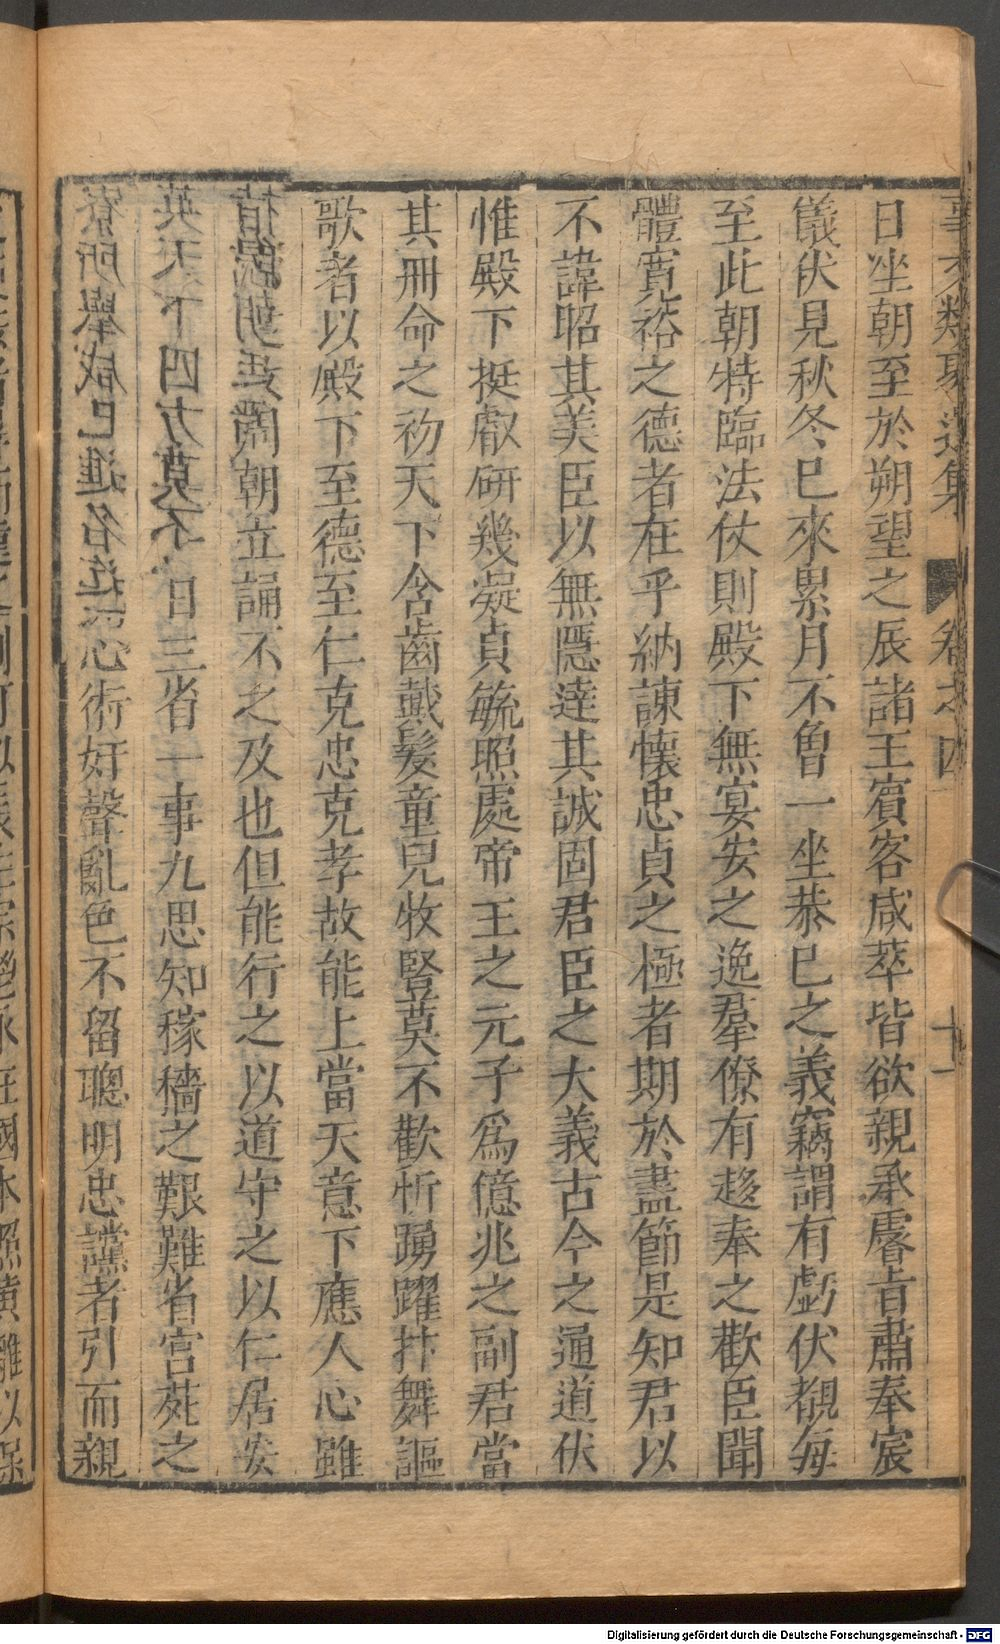 事文類聚遺集 卷之四 十一
日坐朝至於朔望之辰諸王賓客咸萃皆欲親承睿旨肅奉宸
儀伏見秋冬已來累月不曾一坐恭已之義竊謂有虧伏覩每
至此朝特臨法仗則殿下無宴安之逸羣僚有趍奉之歡臣聞
體寬裕之德者在乎納諫懷忠貞之極者期於盡節是知君以
不諱昭其美臣以無隱達其誠固君臣之大義古今之通道伏
惟殿下挺叡研幾凝貞毓照處帝王之元子爲億兆之副君當
其冊命之初天下含齒戴髮童兒牧豎莫不歡忻踴躍抃舞謳
歌者以殿下至德至仁克忠克孝故能上當天意下應人心雖
朝立誦不之及也但能行之以道守之以仁居安
英天下四方莫不 日三省一事九思知稼穡之艱難省宮苑之
寮所舉咸已進名 心術奸聲亂色不留聰明忠讜者引而親
Digitalisierung gefördert durch die Deutsche Forschungsgemeinschaft - DFG